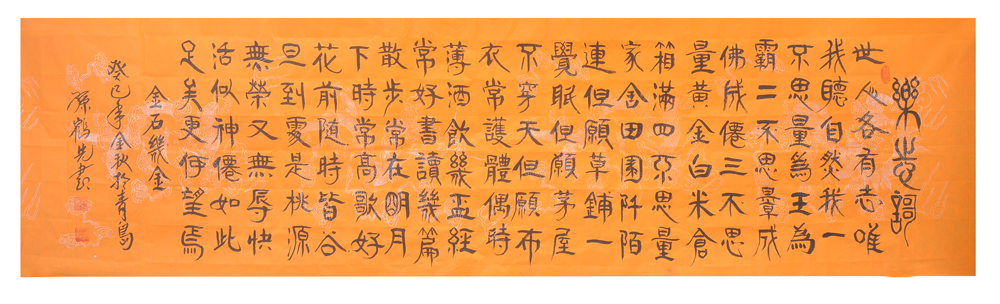 樂志謌
世人各有志唯
我聽自然我一
不思量為王為
霸二不思量成
佛成僊三不思
量黃金白米倉
箱滿四不思量
家舍田園阡陌
連但願草鋪一
覺眠但願茅屋
不穿天但願布
衣常護體偶時
薄酒飲幾盃經
常好書讀幾篇
散步常在明月
下時常高歌好
花前随時皆谷
旦到處是桃源
無榮又無辱快
活似神僊如此
足矣更何望焉
金石幾金
癸巳年金秋於青島
鶴先書